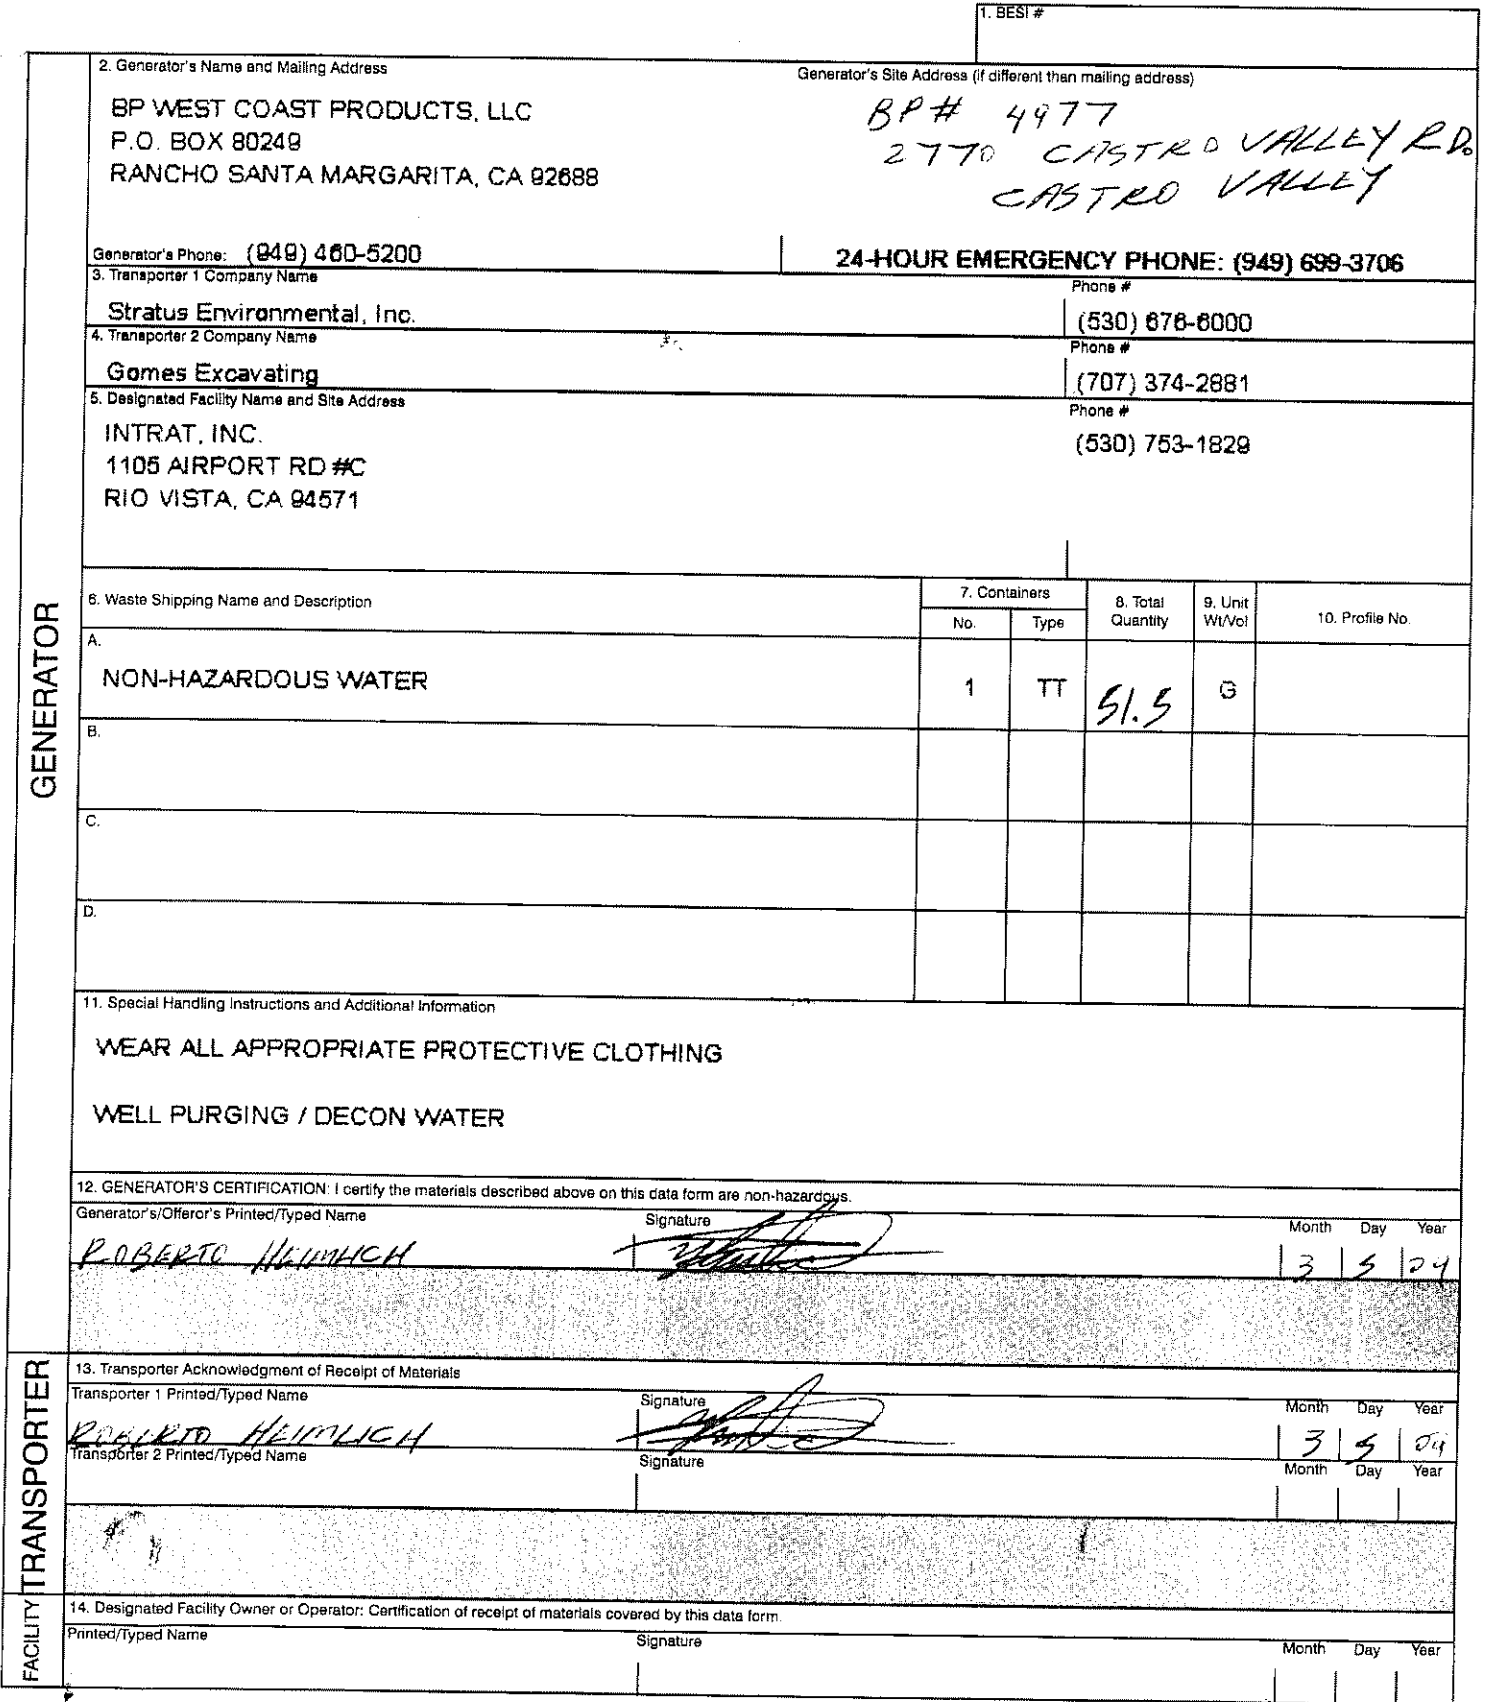 1. BESI #
2. Generator's Name and Mailing Address
Generator's Site Address (if different than mailing address)
BP WEST COAST PRODUCTS, LLC
P.O. BOX 80249
RANCHO SANTA MARGARITA, CA 92688
BP# 4977
2770 CASTRO VALLEY RD.
CASTRO VALLEY
Generator's Phone: (949) 460-5200
24-HOUR EMERGENCY PHONE: (949) 699-3706
3. Transporter 1 Company Name
Phone #
Stratus Environmental, Inc.
(530) 676-6000
4. Transporter 2 Company Name
Phone #
Gomes Excavating
(707) 374-2881
5. Designated Facility Name and Site Address
Phone #
INTRAT, INC.
(530) 753-1829
1105 AIRPORT RD #C
RIO VISTA, CA 94571
GENERATOR
6. Waste Shipping Name and Description
7. Containers
No.
Type
8. Total
Quantity
9. Unit
Wt/Vol
10. Profile No.
A.
NON-HAZARDOUS WATER
1
TT
51.5
G
B.
C.
D.
11. Special Handling Instructions and Additional Information
WEAR ALL APPROPRIATE PROTECTIVE CLOTHING
WELL PURGING / DECON WATER
12. GENERATOR'S CERTIFICATION: I certify the materials described above on this data form are non-hazardous.
Generator's/Offeror's Printed/Typed Name
Signature
Month Day Year
ROBERTO HEIMLICH
3 5
TRANSPORTER
13. Transporter Acknowledgment of Receipt of Materials
Transporter 1 Printed/Typed Name
Signature
Month Day Year
ROBERTO HEIMLICH
3 5
Transporter 2 Printed/Typed Name
Signature
Month Day Year
FACILITY
14. Designated Facility Owner or Operator: Certification of receipt of materials covered by this data form.
Printed/Typed Name
Signature
Month Day Year